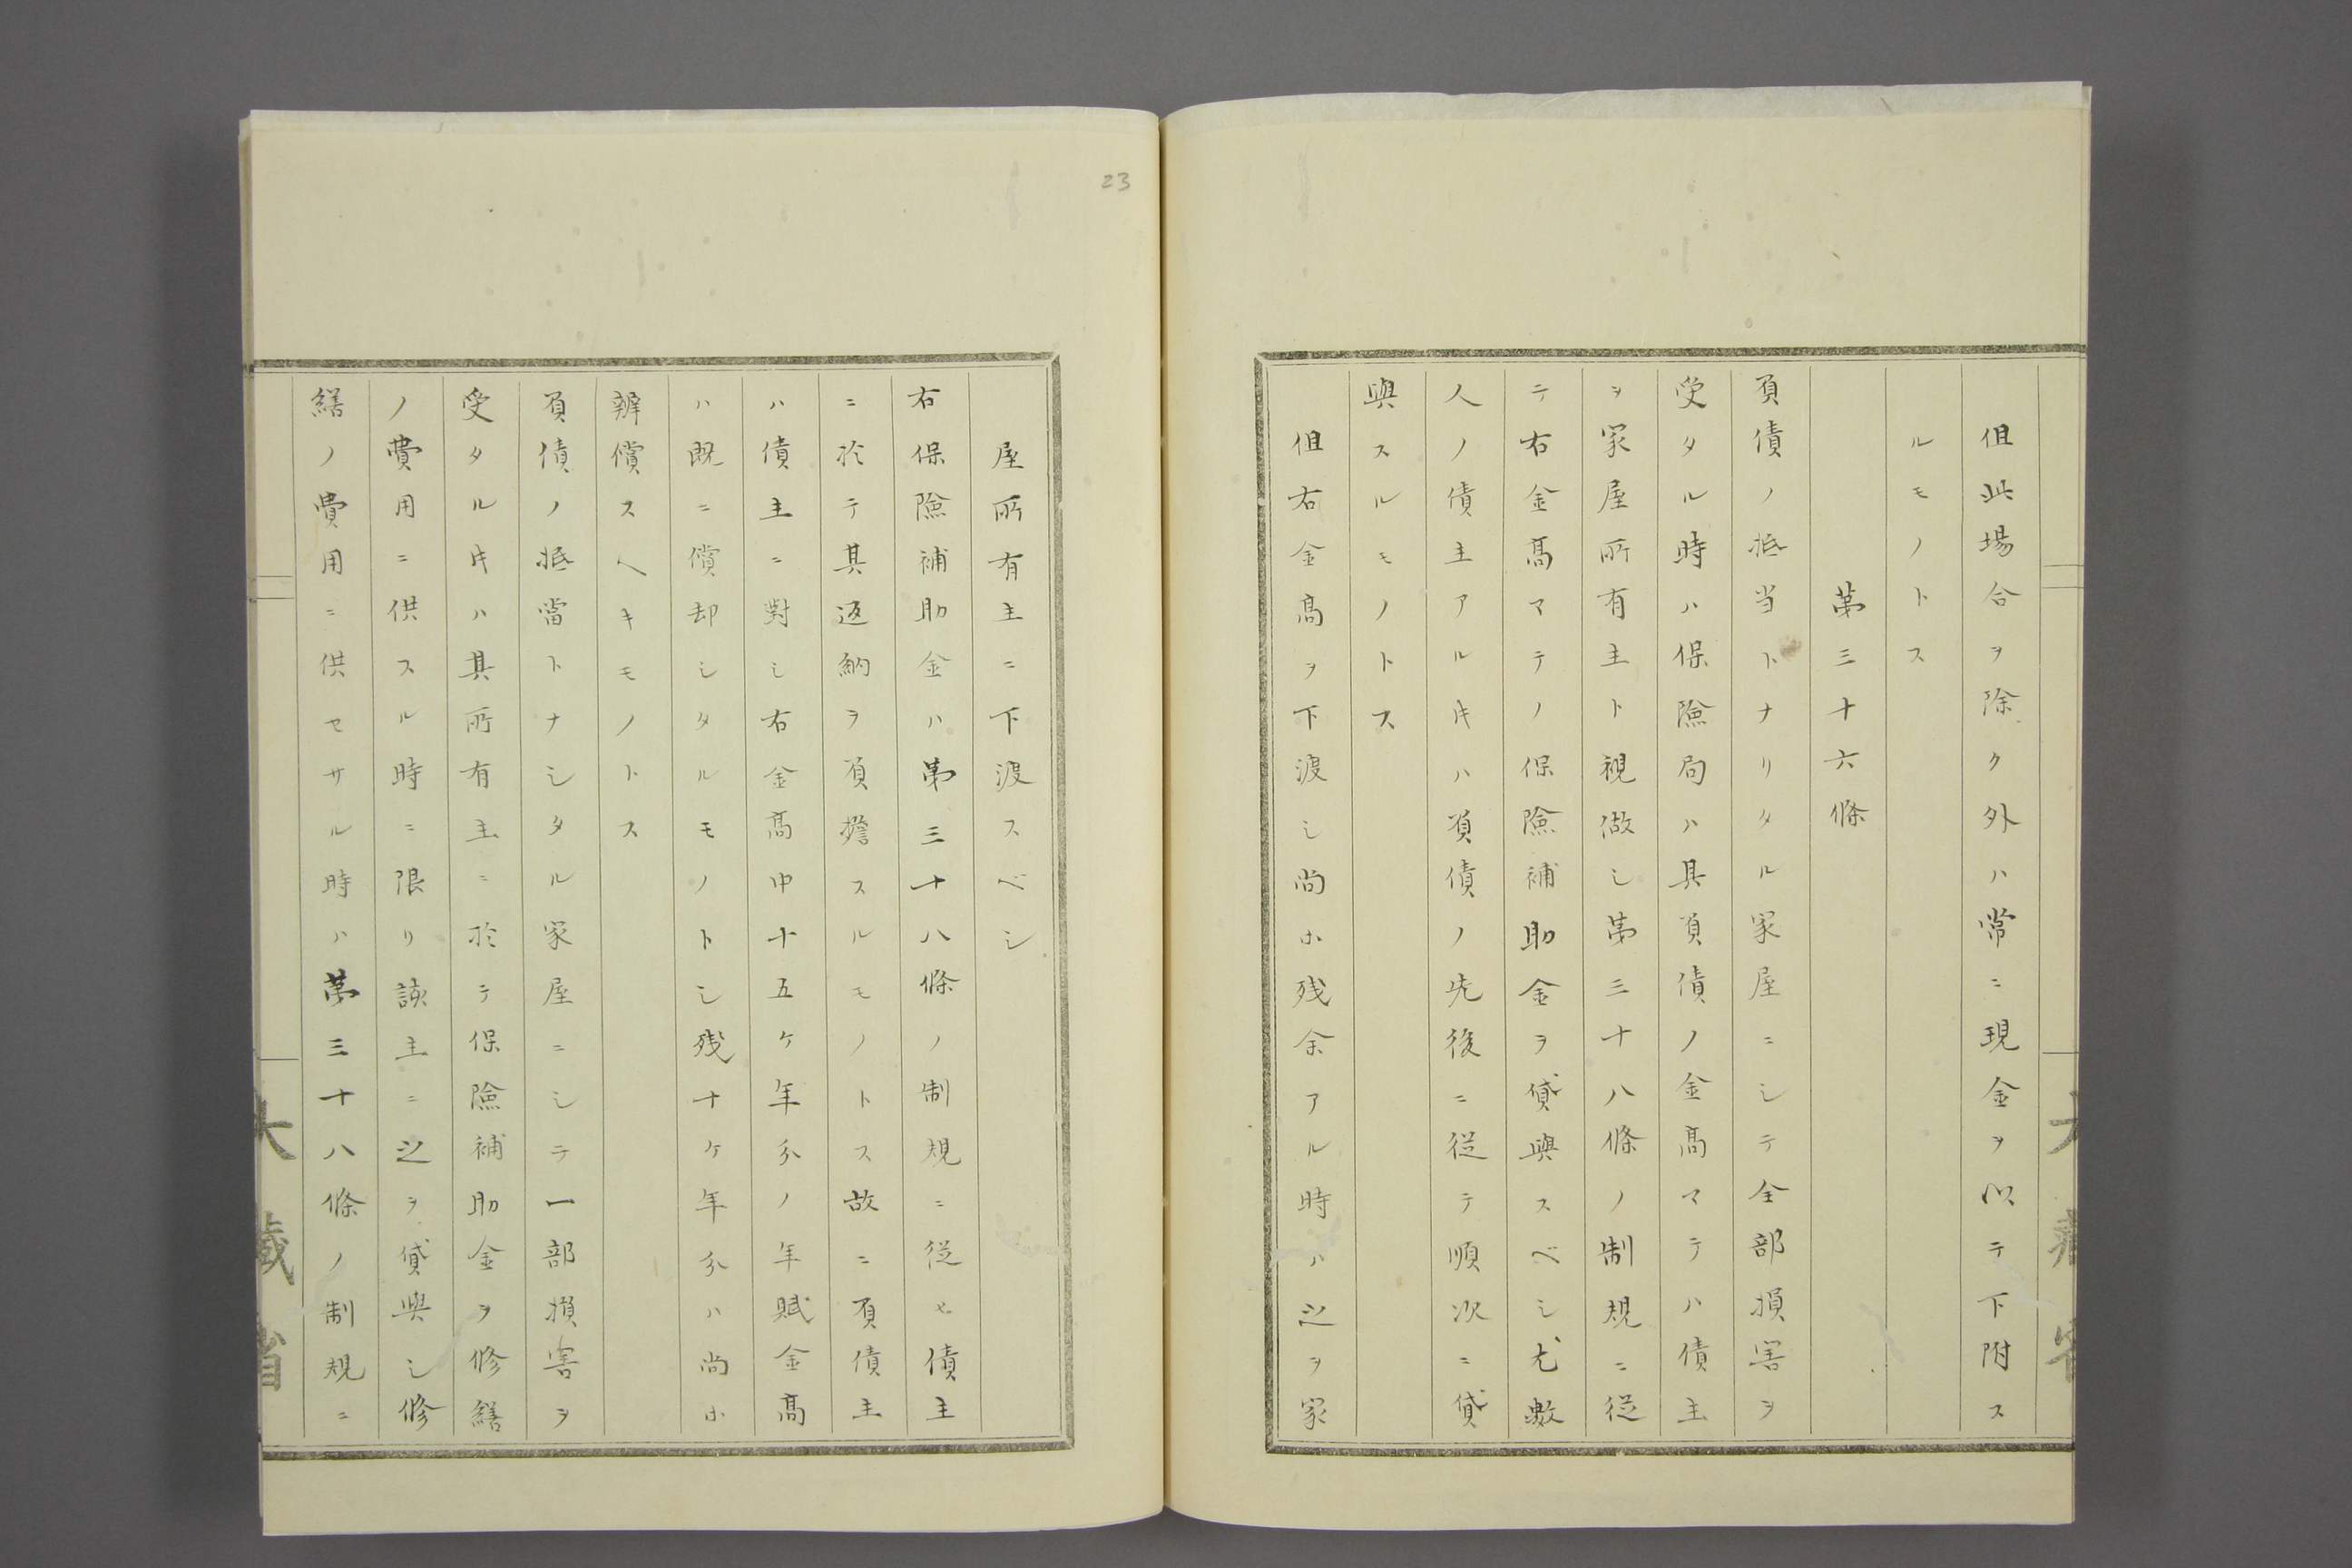 但此場合ヲ除ク外ハ常ニ現金ヲ以テ下附ス
ルモノトス
第三十六條
負債ノ抵当トナリタル家屋ニシテ全部損害ヲ
受タル時ハ保険局ハ具負債ノ金高マテハ債主
ヲ家屋所有主ト視做シ第三十八條ノ制規ニ従
テ右金高マテノ保険補助金ヲ貸與スベシ尤數
人ノ債主アル片ハ負債ノ先後ニ従テ順次ニ貸
與スルモノトス
但右金高ヲ下渡シ尚ホ残余アル時ハ之ヲ家
23
屋所有主ニ下渡スベシ
右保険補助金ハ第三十八條ノ制規ニ従ヒ債主
ニ於テ其返納ヲ負擔スルモノトス故ニ負債主
ハ債主ニ對シ右金高中十五ケ年分ノ年賦金高
ハ既ニ償却シタルモノトシ残十ケ年分ハ尚ホ
辨償スヘキモノトス
負債ノ抵當トナシタル家屋ニシテ一部損害ヲ
受タル片ハ其所有主ニ於テ保険補助金ヲ修繕
ノ費用ニ供スル時ニ限リ該主ニ之ヲ貸與シ修
繕ノ費用ニ供セサル時ハ第三十八條ノ制規ニ
大藏省